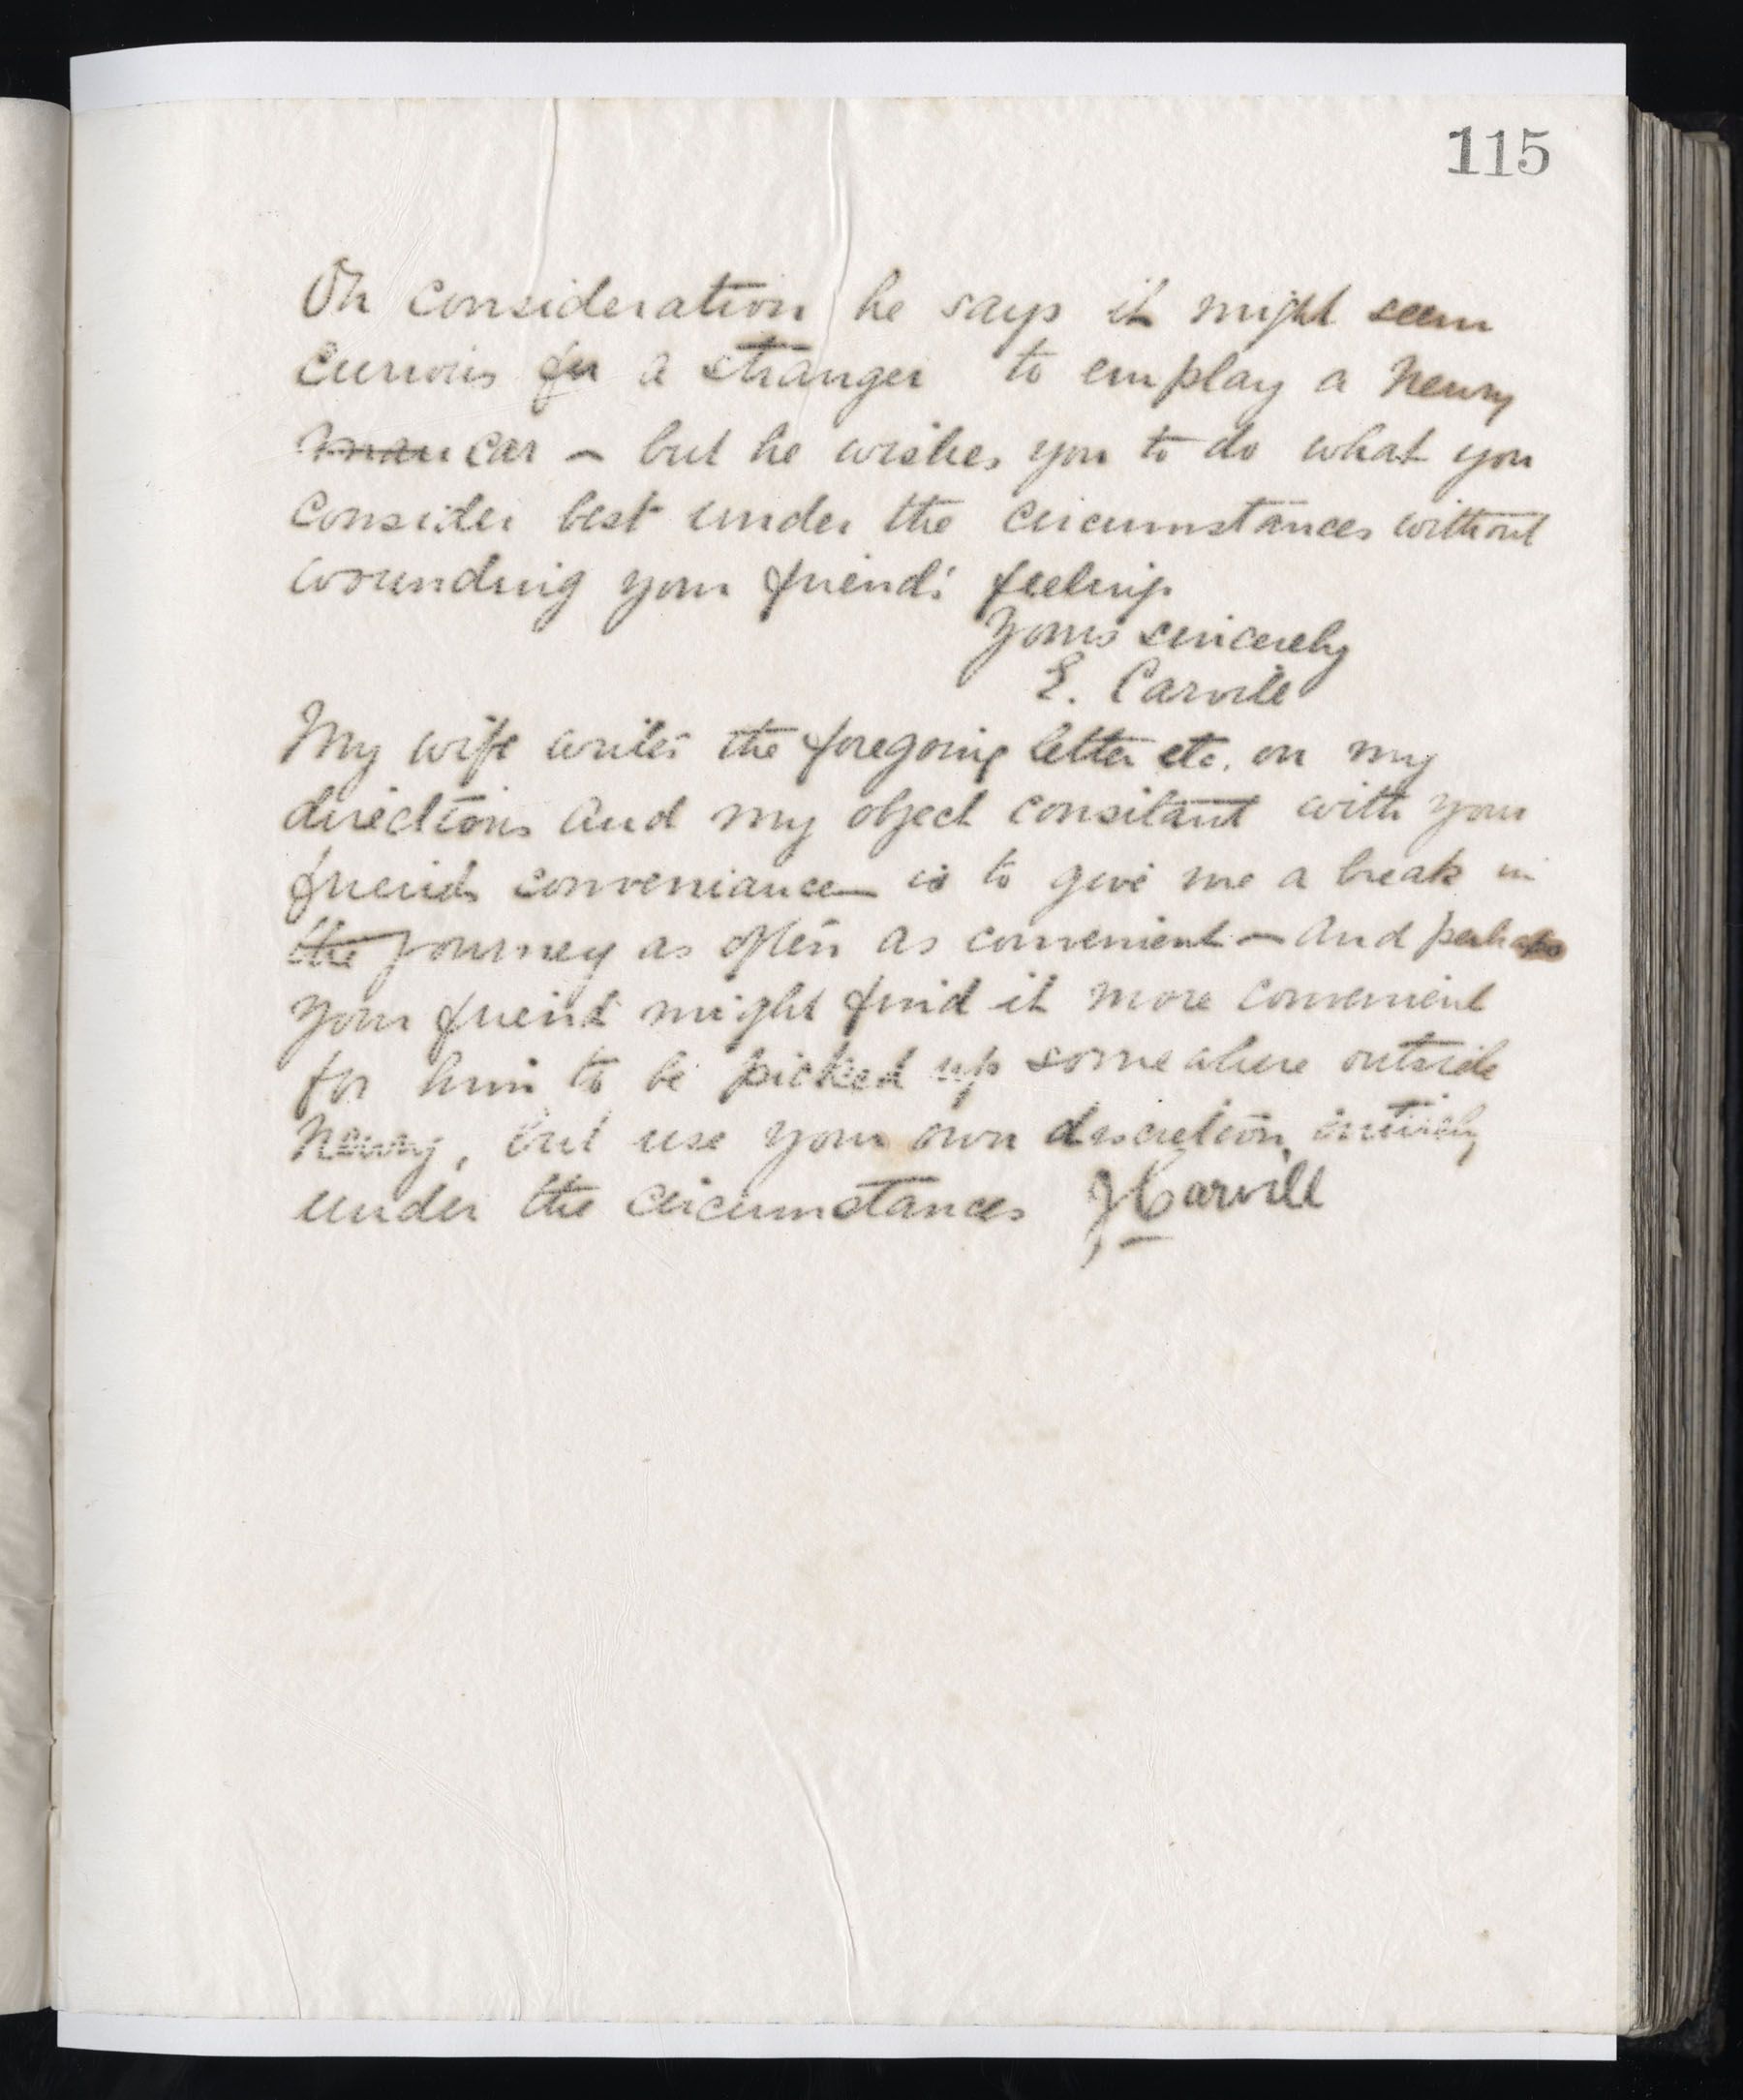 115
On consideration he says it might seem
curious for a stranger to employ a Newry
man car - but he wishes you to do what you
consider best under the circumstances without
wounding your friend's feelings
Yours sincerely
E. Carvill
My wife writes the foregoing letter etc. on my
directions and my object consitant with your
friends conveniance is to give me a break in
the journey as often as convenient - and perhaps
your friend might find it more convenient
for him to be picked up somewhere outside
Newry, but use your own descretion, entirely
under the circumstances J Carvill